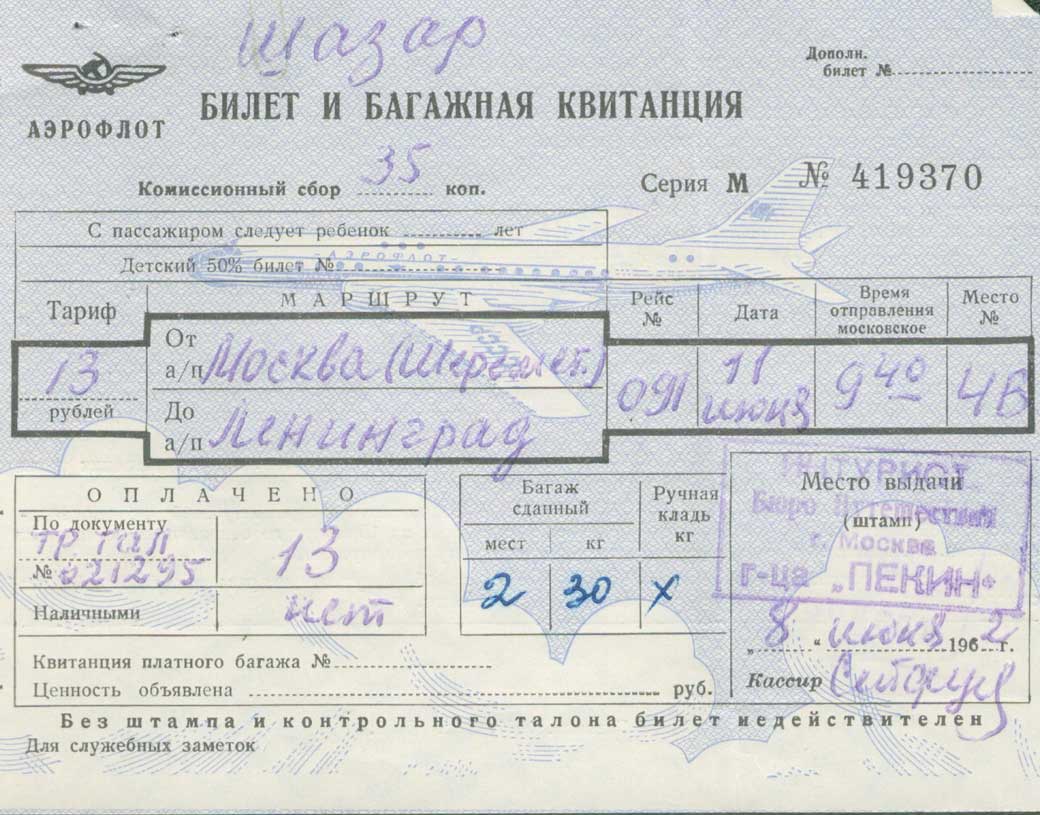 Шазар
Дополн.
билет №
АЭРОФЛОТ
БИЛЕТ И БАГАЖНАЯ КВИТАНЦИЯ
Комиссионный сбор 35 коп.
Серия М № 419370
С пассажиром следует ребенок лет
АЭРОФЛОТ
Детский 50% билет №
Тариф
МАРШРУТ
Рейс №
Дата
Время отправления московское
Место №
13 рублей
От а/п Москва (Шеремет.)
До а/п Ленинград
091
11 июня
9 40
4В
СССР
ОПЛАЧЕНО
По документу
ТР. ТАЛ.
№ 621295
13
Наличными
нет
Багаж сданный
Ручная кладь кг
мест
кг
2
30
х
Место выдачи
(штамп)
ИНТУРИСТ
Бюро Путешествий
г. Москва
г-ца „ПЕКИН“
„ 8 “ июня 1962 г.
Кассир
Квитанция платного багажа №
Ценность объявлена руб.
Без штампа и контрольного талона билет недействителен
Для служебных заметок